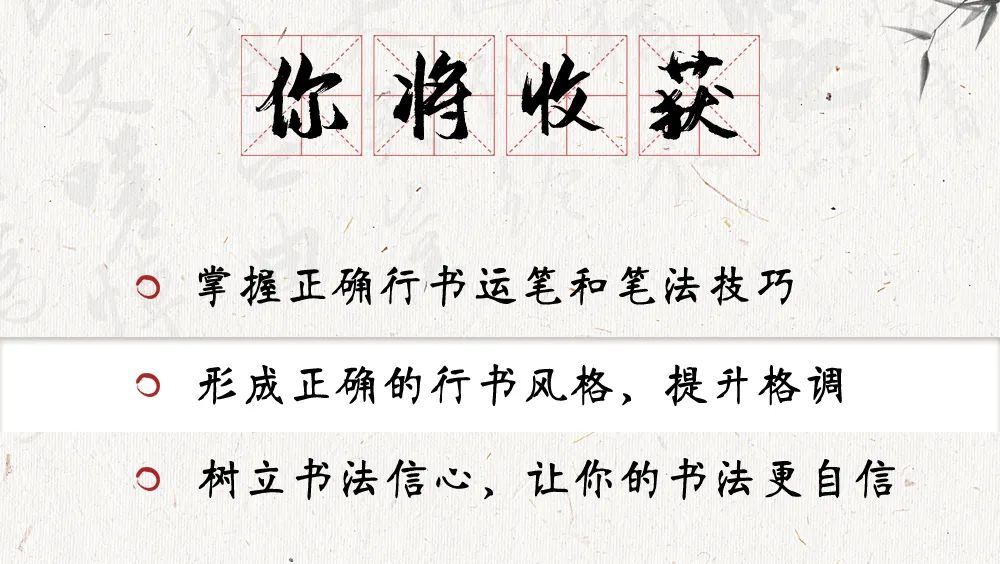 你将收获
掌握正确行书运笔和笔法技巧
形成正确的行书风格，提升格调
树立书法信心，让你的书法更自信